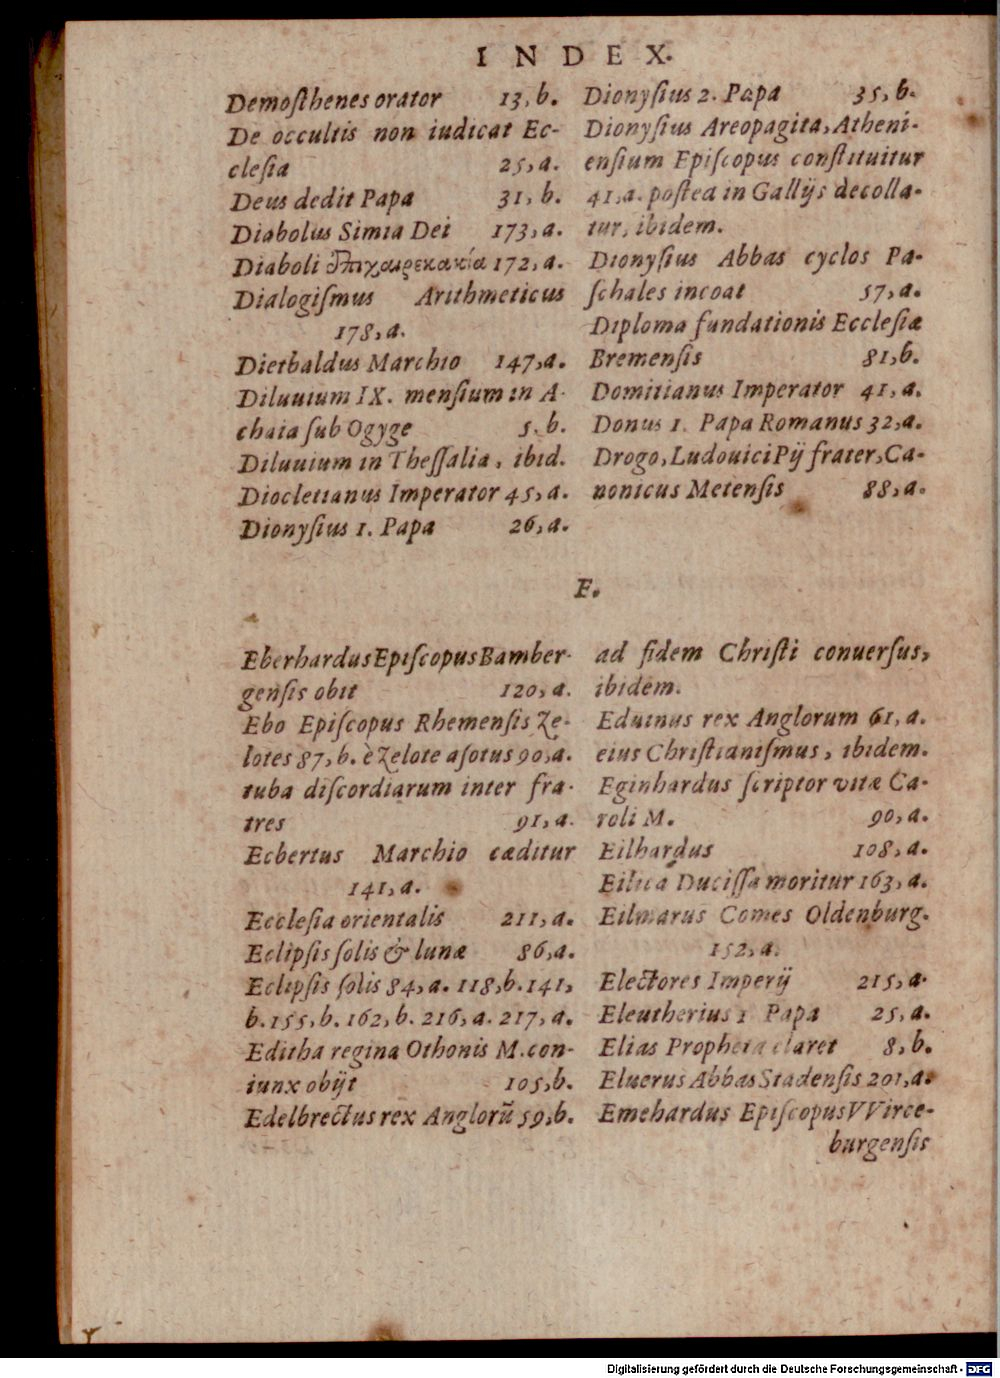 INDEX.
Demoſthenes orator 13, b.
De occultis non iudicat Ec-
cleſia 25, a.
Deus dedit Papa 31, b.
Diabolus Simia Dei 173, a.
Diaboli ἐπιχαιρεκακία 172, a.
Dialogiſmus Arithmeticus
178, a.
Dietbaldus Marchio 147, a.
Diluuium IX. menſium in A-
chaia ſub Ogyge 5. b.
Diluuium in Theſſalia, ibid.
Diocletianus Imperator 45, a.
Dionyſius 1. Papa 26, a.
Dionyſius 2. Papa 35, b.
Dionyſius Areopagita, Atheni-
enſium Epiſcopus conſtituitur
41, a. poſtea in Gallijs decolla-
tur, ibidem.
Dionyſius Abbas cyclos Pa-
ſchales incoat 57, a.
Diploma fundationis Eccleſiæ
Bremenſis 81, b.
Domitianus Imperator 41, a.
Donus 1. Papa Romanus 32, a.
Drogo, Ludouici Pij frater, Ca-
nonicus Metenſis 88, a.
E.
Eberhardus Epiſcopus Bamber-
genſis obit 120, a.
Ebo Epiſcopus Rhemenſis Ze-
lotes 87, b. è Zelote aſotus 90, a.
tuba diſcordiarum inter fra-
tres 91, a.
Ecbertus Marchio cæditur
141, a.
Eccleſia orientalis 211, a.
Eclipſis ſolis & lunæ 86, a.
Eclipſis ſolis 84, a. 118, b. 141,
b. 155, b. 162, b. 216, a. 217, a.
Editha regina Othonis M. con-
iunx obijt 105, b.
Edelbrectus rex Anglorũ 59, b.
ad fidem Chriſti conuerſus,
ibidem.
Eduinus rex Anglorum 61, a.
eius Chriſtianiſmus, ibidem.
Eginhardus ſcriptor vitæ Ca-
roli M. 90, a.
Eilhardus 108, a.
Eilica Duciſſa moritur 163, a.
Eilmarus Comes Oldenburg.
152, a.
Electores Imperij 215, a.
Eleutherius 1 Papa 25, a.
Elias Propheta claret 8, b.
Eluerus Abbas Stadenſis 201, a.
Emehardus Epiſcopus VVirce-
burgenſis
Digitalisierung gefördert durch die Deutsche Forschungsgemeinschaft - DFG